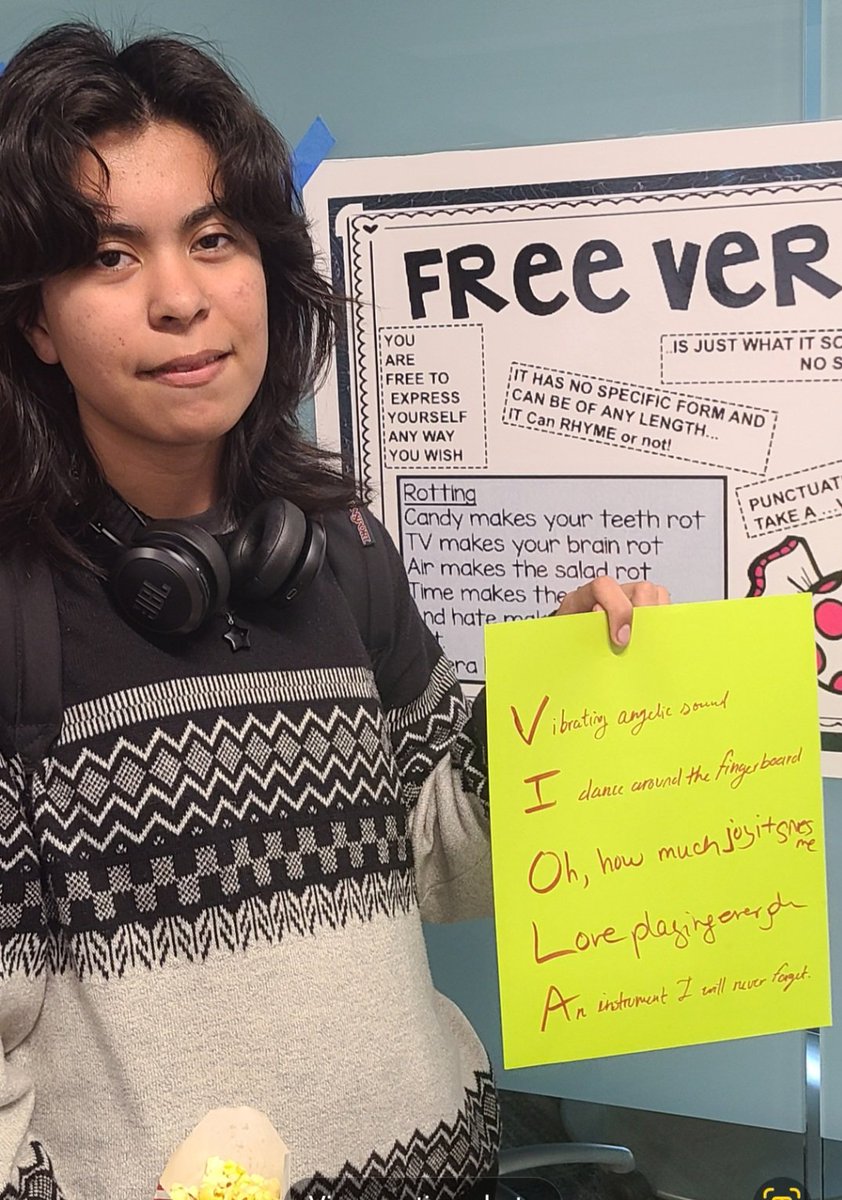 FREE VER
YOU
ARE
FREE TO
EXPRESS
YOURSELF
ANY WAY
YOU WISH
..IS JUST WHAT IT SO
NO S
IT HAS NO SPECIFIC FORM AND
CAN BE OF ANY LENGTH...
IT Can RHYME or not!
PUNCTUAT
TAKE A
Rotting
Candy makes your teeth rot
TV makes your brain rot
Air makes the salad rot
Time makes the
nd hate mak
t
era
JBL
JANSPORT
Vibrating angelic sound
I dance around the fingerboard
Oh, how much joy it gives
me
Love playing
An instrument I will never forget.